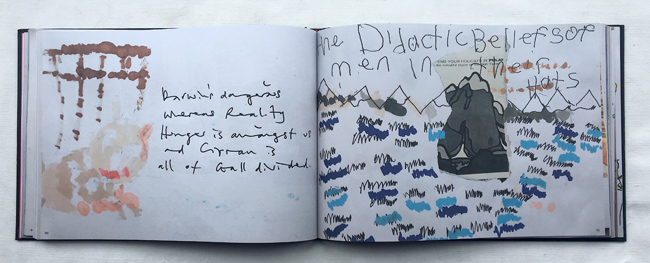 Darwin's dangerous
whereas Reality
Hunger is amongst us
and is
all of divided
the Didactic Beliefs of
men in their
hats
FIND YOUR FOLICALS IN